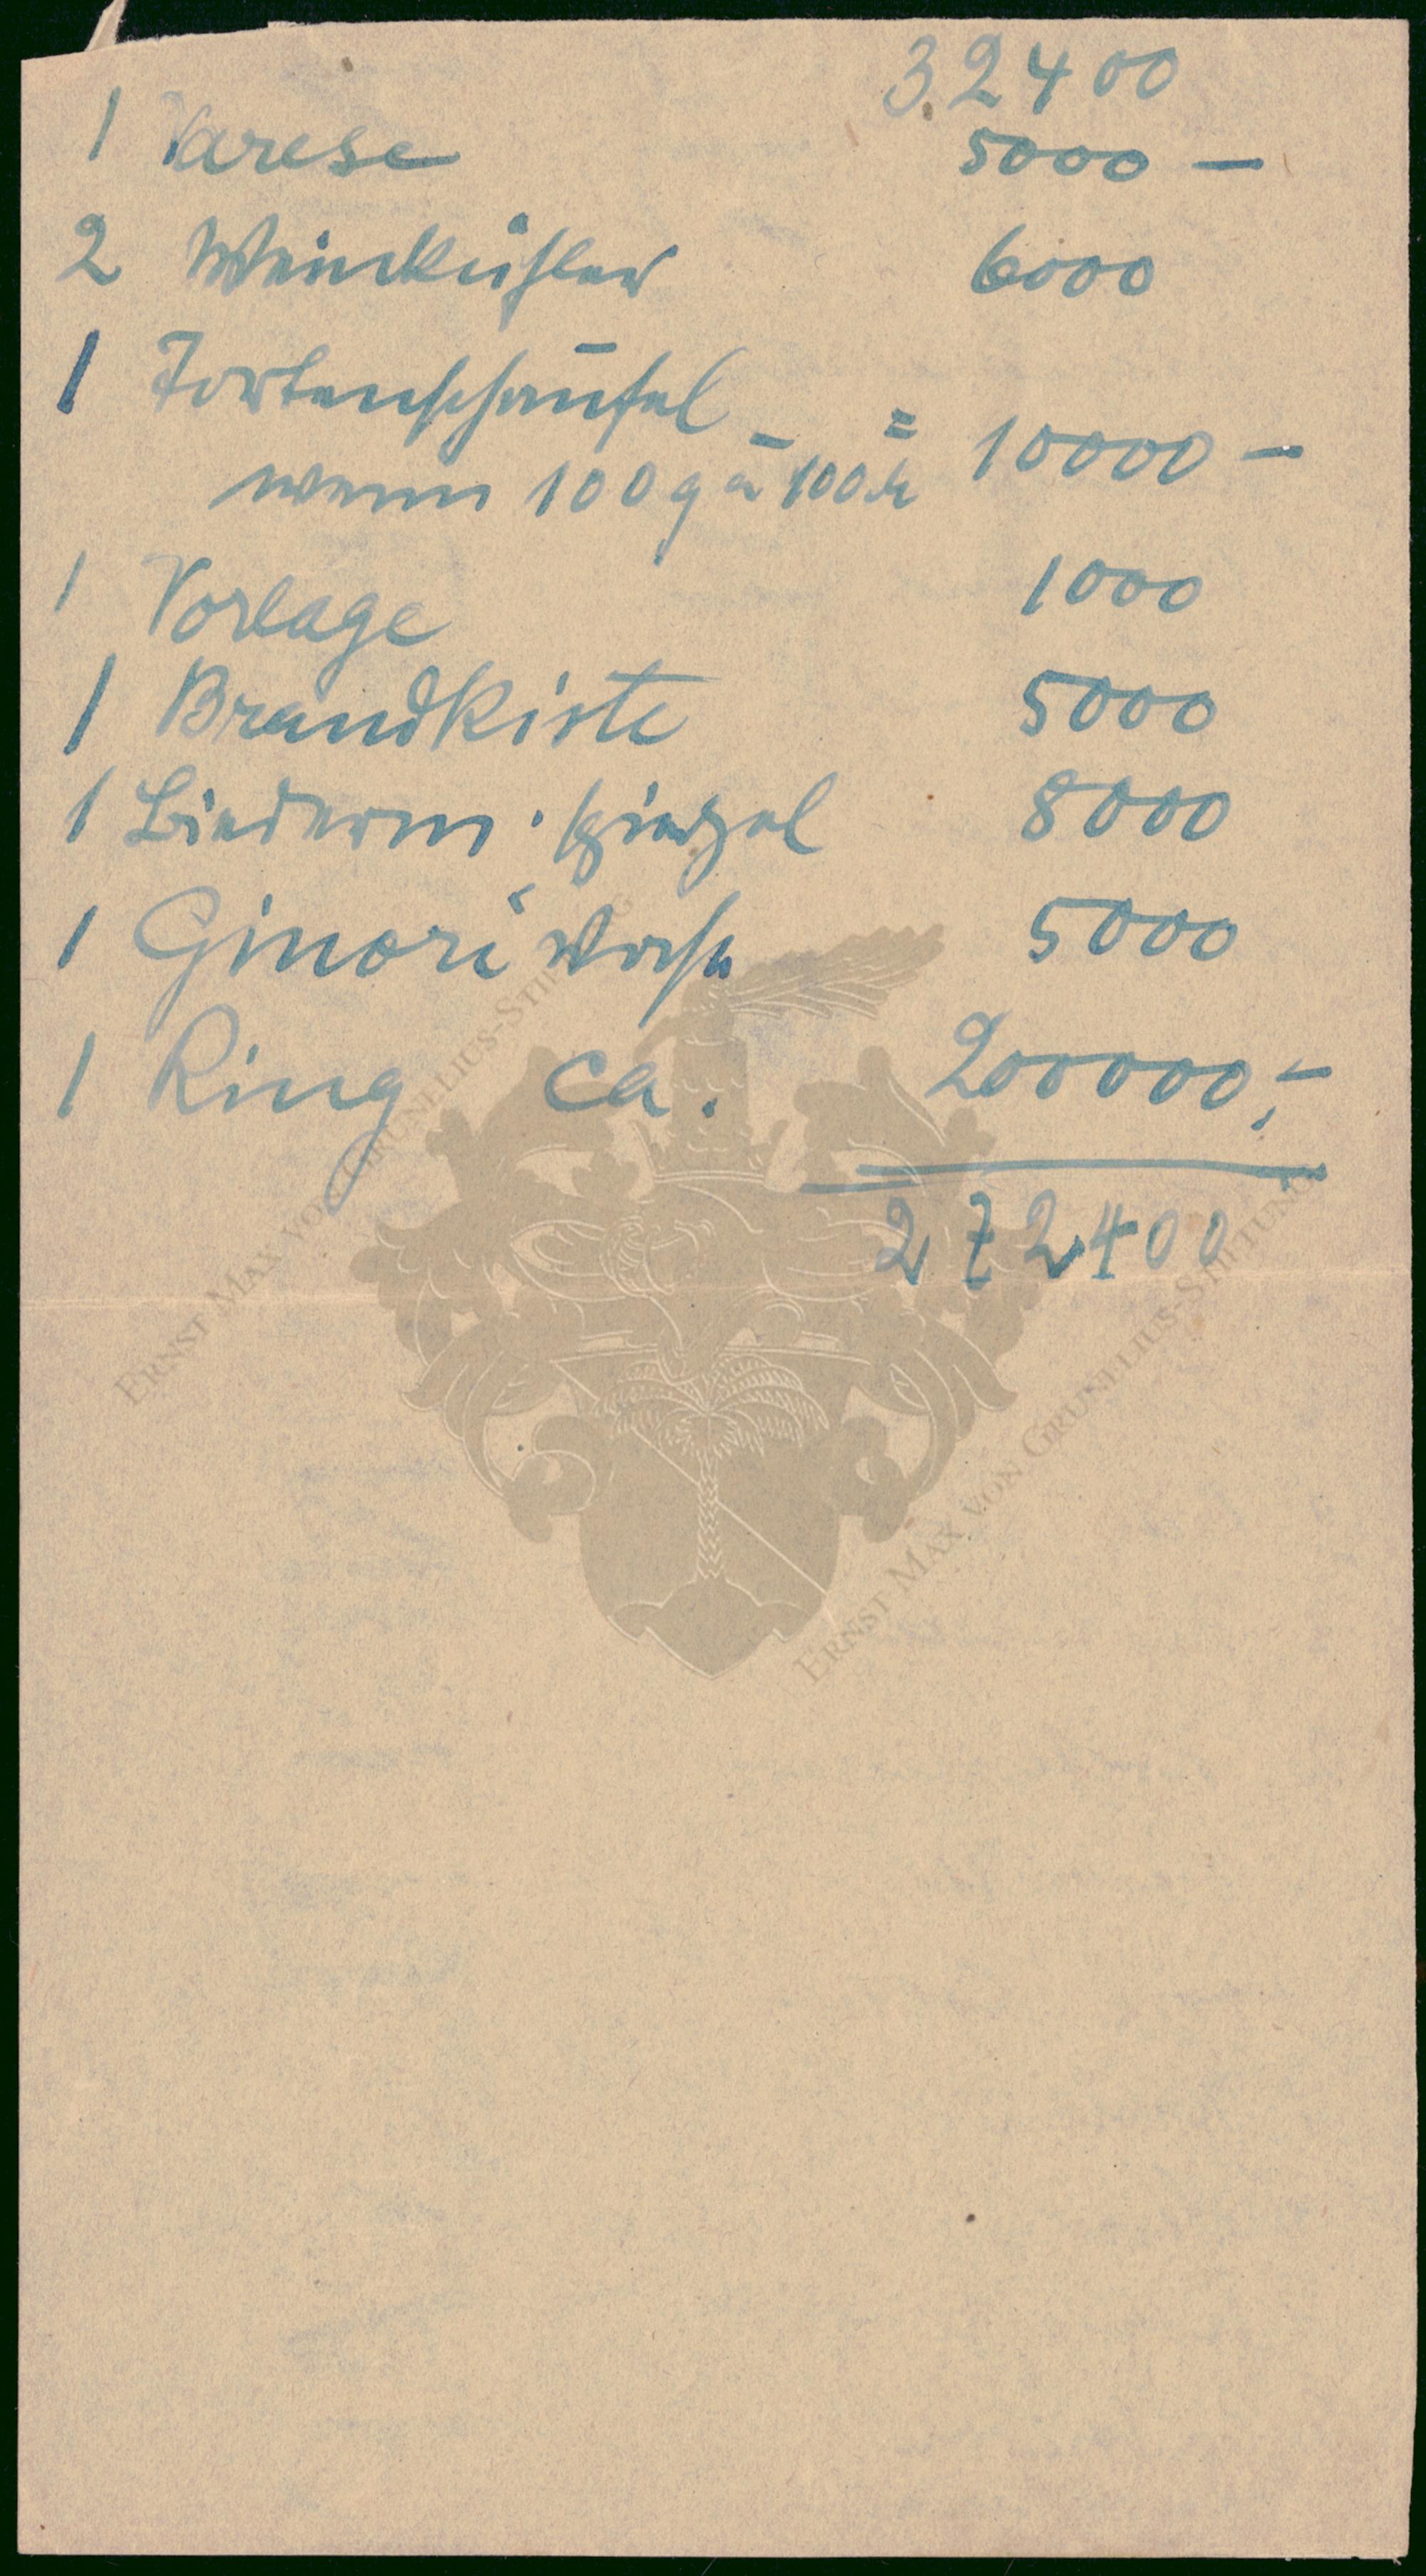 32400
1 Varese 5000 —
2 Weinkühler 6000
1 Tortenschaufel = 10000 —
wenn 100 g à 100 M
1 Vorlage 1000
1 Brandkiste 5000
1 Biederm. spiegel 8000
1 Ginori Vase 5000
1 Ring ca. 200000,—
272400
ERNST MAX VON GRUNELIUS-STIFTUNG
ERNST MAX VON GRUNELIUS-STIFTUNG